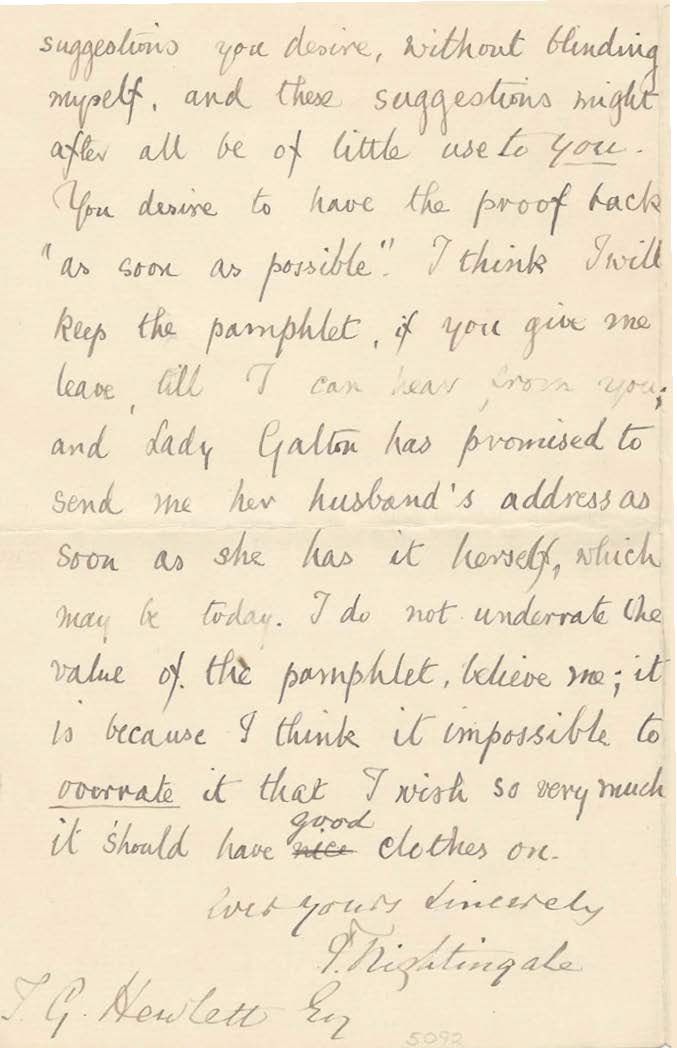 suggestions you desire, without blinding
myself, and these suggestions might
after all be of little use to you.
You desire to have the proof back
"as soon as possible". I think I will
keep the pamphlet, if you give me
leave, till I can hear from you;
and Lady Galton has promised to
send me her husband's address as
soon as she has it herself, which
may be today. I do not underrate the
value of the pamphlet, believe me; it
is because I think it impossible to
overrate it that I wish so very much
it should have nice good clothes on.
Ever yours sincerely
F. Nightingale
T. G. Hewlett Esq
5092